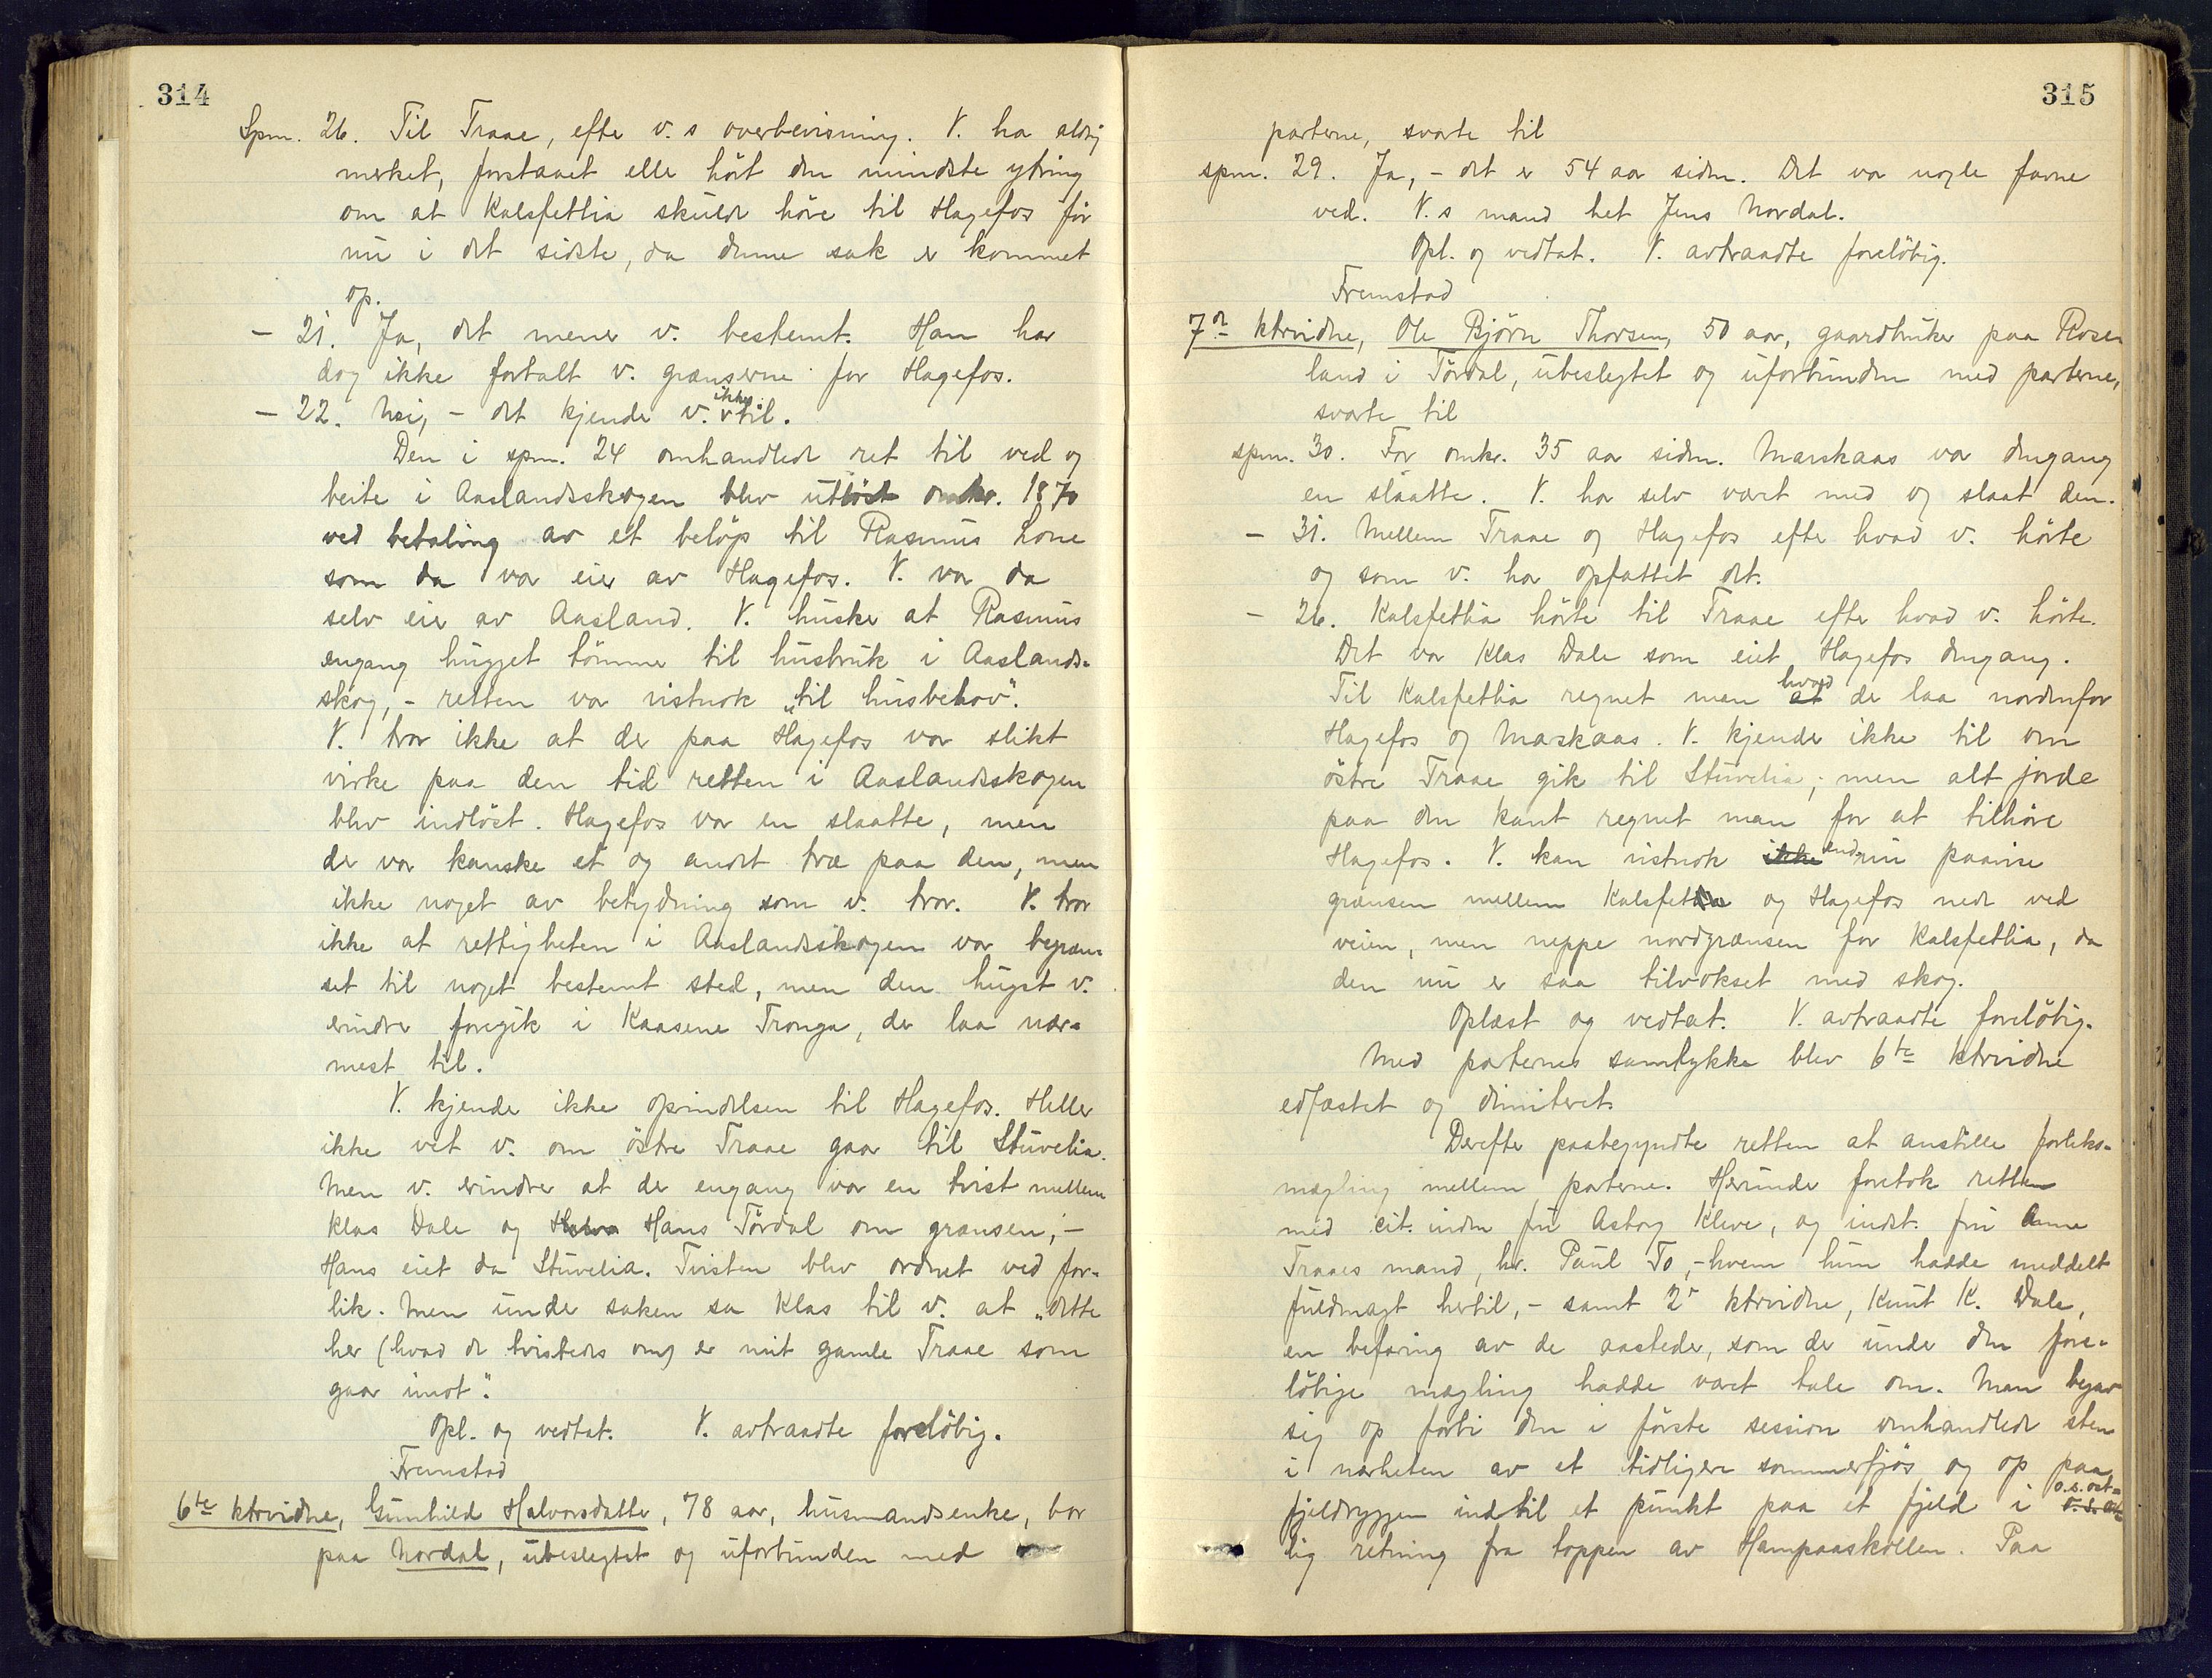 314
Spm. 26. Til Traae, efter v.s overbevisning. V. har aldrig
merket, forstaaet eller hört den mindste ytring
om at Kalsfetlia skulde höre til Hagefos för
nu i det sidste, da denne sak er kommet
op.
— 21. Ja, det mener v. bestemt. Han har
dog ikke fortalt v. grænserne for Hagefos.
— 22. Nei, - det kjender v. ikke til.
Den i spm. 24 omhandlede ret til ved og
beite i Aaslandsskogen blev utlöst omkr. 1870
ved betaling av et belöp til Rasmus Lone
som da var eier av Hagefos. V. var da
selv eier av Aasland. V. husker at Rasmus
engang hugget tömmer til husbruk i Aaslands=
skog, - retten var vistnok „til husbehov".
V. tror ikke at der paa Hagefos var slikt
virke paa den tid retten i Aaslandsskogen
blev indlöst. Hagefos var en slaatte, men
der var kanske et og andet træ paa den, men
ikke noget av betydning som v. tror. V. tror
ikke at rettigheten i Aaslandsskogen var begræn=
set til noget bestemt sted, men den hugst v.
erindrer foregik i Kaasene Tronga, der laa nær=
mest til.
V. kjender ikke oprindelsen til Hagefos. Heller
ikke vet v. om östre Traae gaar til Stuvelia.
Men v. erindrer at der engang var en tvist mellem
Klas Dale og Hans Tördal om grænsen; -
Hans eiet da Stuvelia. Tvisten blev ordnet ved for=
lik. Men under saken sa Klas til v. at „dette
her (hvad de tvistedes om) er mit gamle Traae som
gaar imot".
Opl. og vedtat. V. avtraadte foreløbig.
Fremstod
6te ktrvidne, Gunhild Halvorsdatter, 78 aar, husmandsenke, bor
paa Nordal, ubeslegtet og uforbunden med
315
parterne, svarte til
spm. 29. Ja, - det er 54 aar siden. Det var nogle favne
ved. V.s mand het Jens Nordal.
Opl. og vedtat. V. avtraadte forelöbig.
Fremstod
7de ktrvidne, Ole Björn Thorsen, 50 aar, gaardbruker paa Rosen
land i Tördal, ubeslegtet og uforbunden med parterne,
svarte til
spm. 30. For omkr. 35 aar siden. Marskaas var dengang
en slaatte. V. har selv været med og slaat den.
— 31. Mellem Traae og Hagefos efter hvad v. hörte
og som v. har opfattet det.
— 26. Kalsfetlia hörte til Traae efter hvad v. hörte.
Det var Klas Dale som eiet Hagefos dengang.
Til Kalsfetlia regnet man at hvad der laa nordenfor
Hagefos og Maskaas. V. kjender ikke til om
östre Traae gik til Stuvelia; men alt jorde
paa den kant regnet man for at tilhöre
Hagefos. V. kan vistnok ikke endnu paavise
grænsen mellem Kalsfetlia og Hagefos nede ved
veien, men neppe nordgrænsen for Kalsfetlia, da
den nu er saa tilvokset med skog.
Oplæst og vedtat. V. avtraadte forelöbig.
Med parternes samtykke blev 6te ktrvidne
edfæstet og dimiteret.
Derefter paabegyndte retten at anstille forliks=
mægling mellem parterne. Herunder foretok retten
med cit. inden fru Asborg Kleve, og indst. fru Anne
Traaes mand, hr. Paul To, - hvem hun hadde meddelt
fuldmagt hertil, - samt 2. ktrvidne, Knut K. Dale,
en befaring av de aasteder, som der under den fore=
löbige mægling hadde været tale om. Man begav
sig op forbi den i förste session omhandlede sten
i nærheten av et tidligere sommerfjös og op paa
fjeldryggen indtil et punkt paa et fjeld i o.s.ost=
lig retning fra toppen av Hampaaskollen. Paa